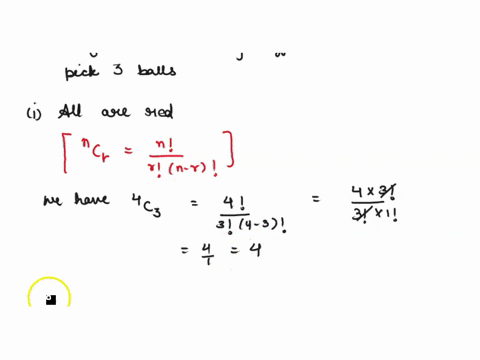 pick 3 balls
(i) All are red
[ nCr = n! / r! (n-r)! ]
we have 4C3 = 4! / 3! (4-3)! = 4 × 3! / 3! × 1!
= 4/1 = 4